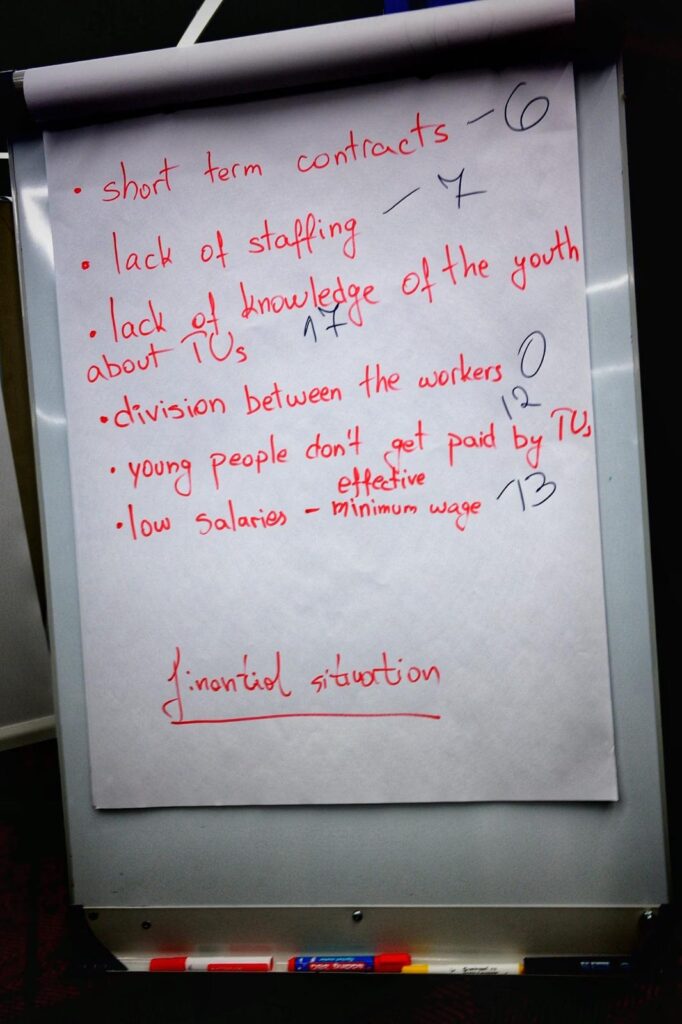 • short term contracts – 6
• lack of staffing – 7
• lack of knowledge of the youth
about TUs 17
• division between the workers 0
• young people don't get paid by TUs 12
effective
• low salaries – minimum wage – 13
finantial situation